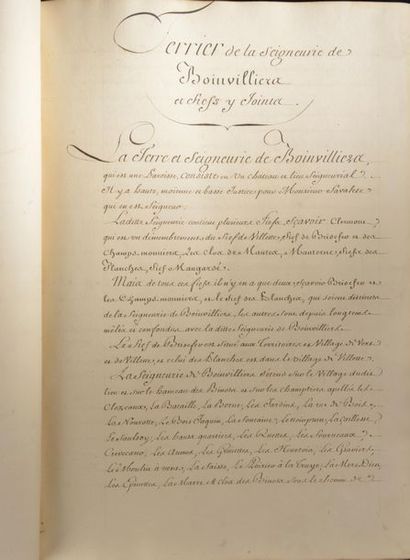 Terrier de la Seigneurie de
Boinvilliers
et fiefs y Joints.
La Terre et Seigneurie de Boinvilliers,
qui est une Paroisse, Consiste en Un chateau et lieu Seigneurial
Il y a haute, moienne et basse Justice pour Monsieur Savalete
qui en est Seigneur
Ladite Seigneurie contient plusieurs fiefs, Sçavoir Clermont
qui est un démembrement du fief de Villette, fief de Brisefer et des
Champs monniers, Les Clos de Mantes, fiefs des
Planches, fief Maugarsé.
Mais de tous ces fiefs il n'y en a que deux Sçavoir Brisefer et
les Champs monniers, et le fief des Planches, qui soient distincts
de la Seigneurie de Boinvilliers, les autres sont depuis longtems
mêlés et confondus avec la dite Seigneurie de Boinvilliers.
Le fief de Brisefer est Situé aux Territoires et Village de Vert
et de Villette, et celui des Planches est dans le Village de Villette.
La Seigneurie de Boinvilliers s'étend Sur le Village dudit
lieu et sur le hameau des Binets et sur les champtiers apellés les
Clozeaux, La Bataille, La Borne, Les Jardins, La rue de Bois,
La Nouvotte, Le Bois Jaquin, La fontaine,
Le Saulsoy, Les hauts graviers, Les
Crevecœur, Les Aunes, Les Genettes, Les Graviers,
Le Moulin à vent, La Saisse, Le Poirier à la Truye, La Mere Dieu,
Les Epinettes, La Marre et clos des Binets Sous le chemin de